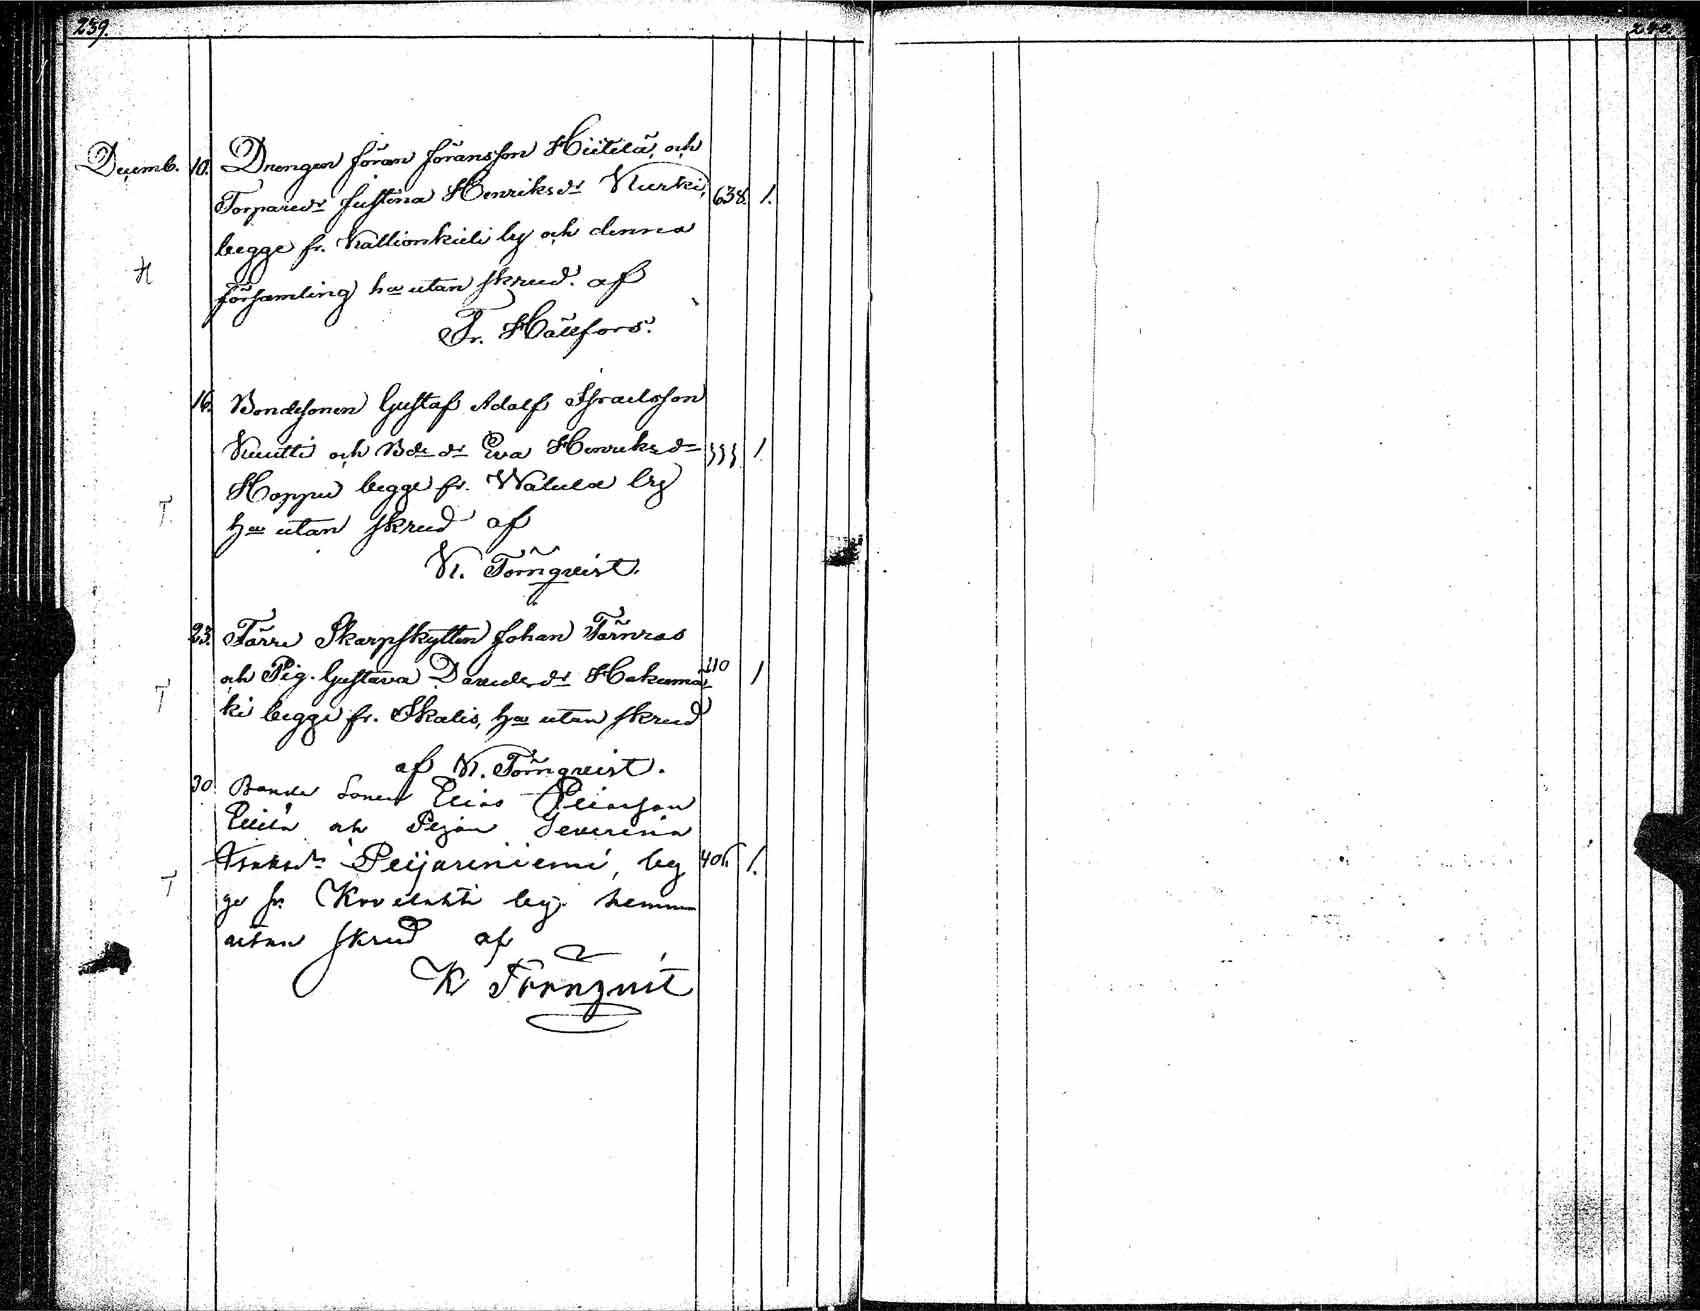 239.
240.
Decemb. 10. Drengen Jöran Göransson Hiitelä, och
Torparedr Justina Henriksdr Kurki, 638. 1.
begge fr. Kallionkieli by och denna
H
församling hma utan skrud. af
Fr. Hällfors.
16. Bondesonen Gustaf Adolf Israelsson
Knutti och Bde dr Eva Henriksdr 333 1
Hoppu begge fr. Watula by
T.
hma utan skrud af
K. Törnqveist.
23. Förre Skarpskytten Johan Törnros
och Pig. Gustava Davidsdr Hakamä- 110 1
T
ki begge fr. Skalis, hma utan skrud
af K. Törnqveist.
30. Bonde Sonen Elias Eliasson
Eililä och Pigan Severina
Isaksdr Peijariniemi, beg 406 1.
T
ge fr. by. hemma
utan skrud af
K Törnqvist